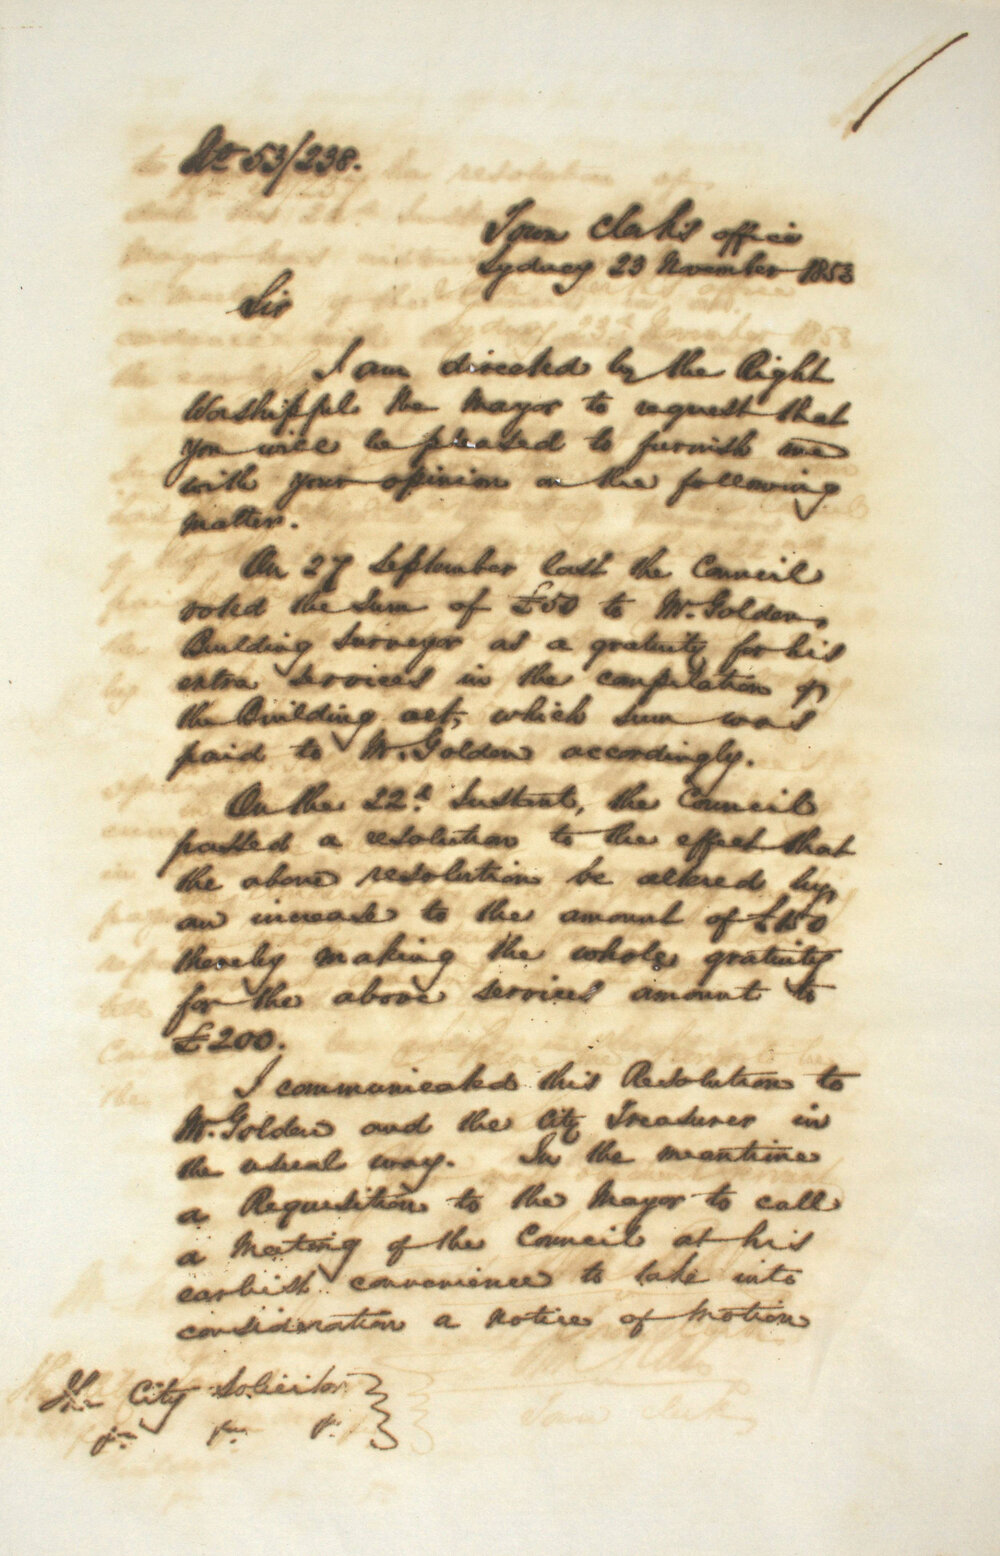 No 53/238.
Town Clerk's office
Sydney 23 November 1853
Sir
I am directed by the Right
Worshipful the Mayor to request that
you will be pleased to furnish me
with your opinion on the following
matter.
On 27 September last the Council
voted the Sum of £50 to Mr. Golden,
Building Surveyor as a gratuity for his
extra services in the compilation of
the Building act, which sum was
paid to Mr. Golden accordingly.
On the 22d Instant, the Council
passed a resolution to the effect that
the above resolution be altered by
an increase to the amount of £150
thereby making the whole gratuity
for the above services amount to
£200.
I communicated this Resolution to
Mr. Golden and the City Treasurer in
the usual way. In the meantime
a Requisition to the Mayor to call
a Meeting of the Council at his
earliest convenience to take into
consideration a notice of Motion
The City Solicitor